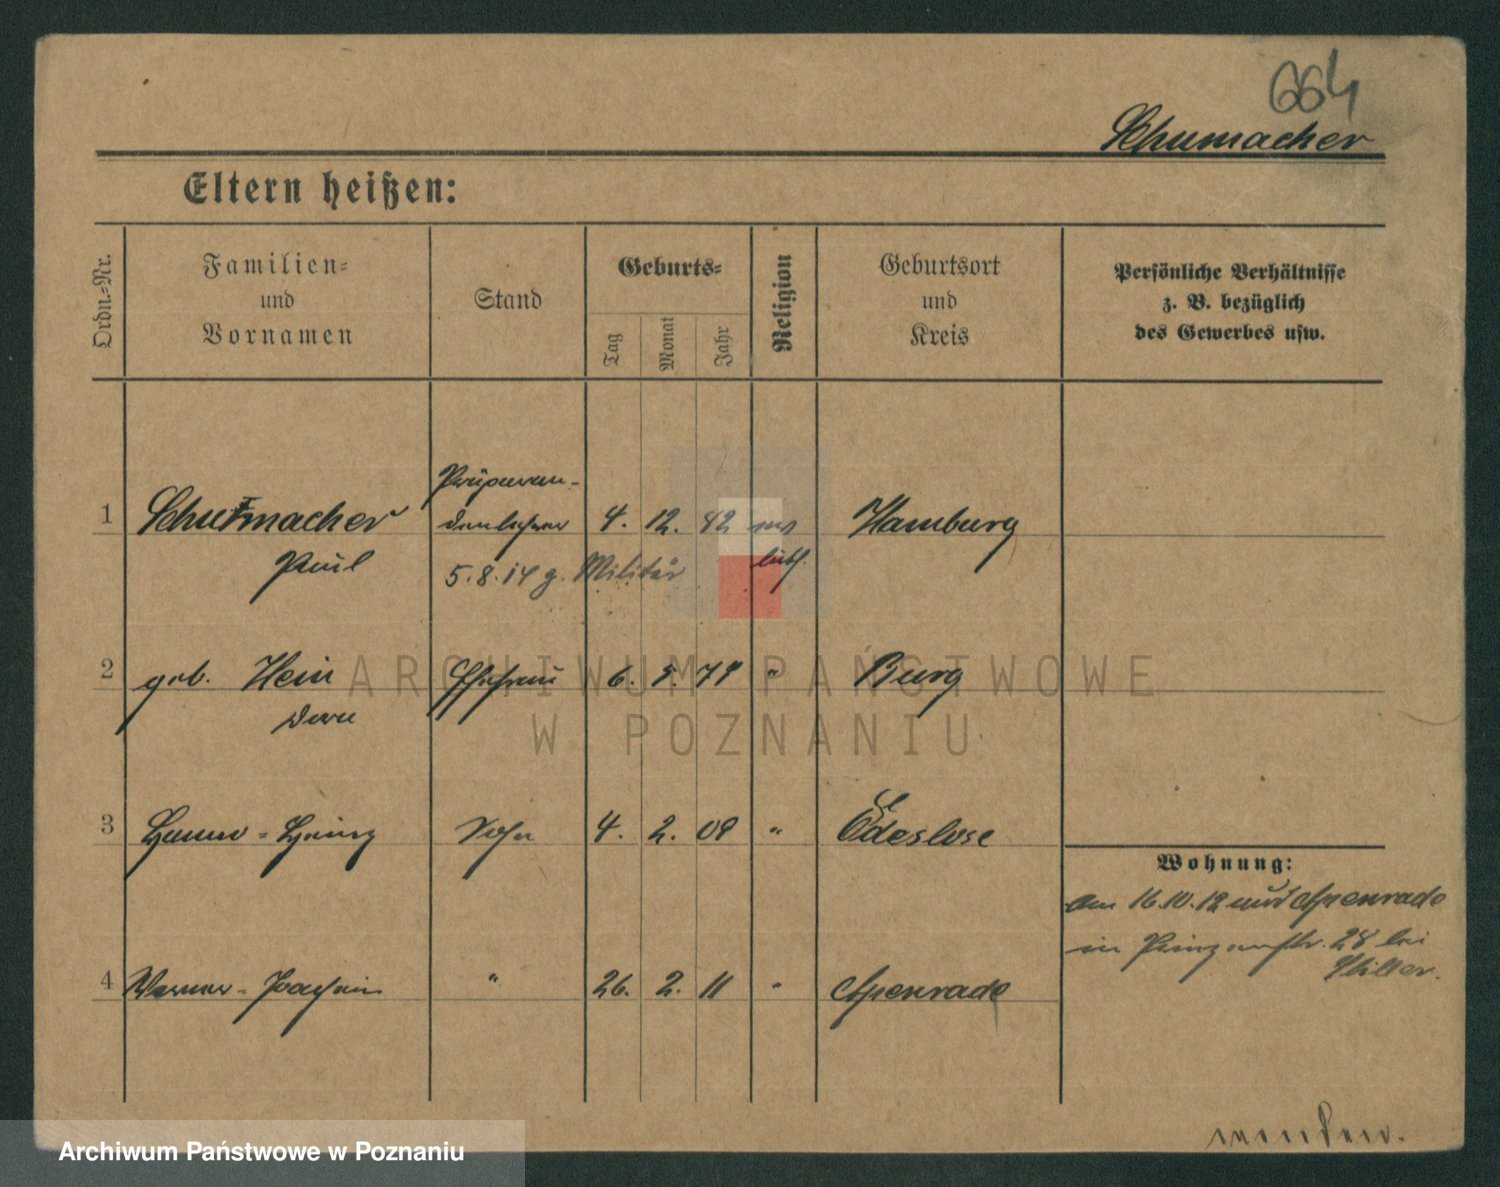 664
Schumacher
Eltern heißen:
Ordn.=Nr.
Familien=
und
Vornamen
Stand
Geburts=
Tag
Monat
Jahr
Religion
Geburtsort
und
Kreis
Persönliche Verhältnisse
z. B. bezüglich
des Gewerbes usw.
Präparan-
1 Schumacher denlehrer 4. 12. Hamburg
Paul 5.8.14 z. Militär luth.
2 geb. Hein Ehefrau 6. 79 " Burg
3 Hanno-Heinz Sohn 4. 2. 09 "
4 Werner-Joachim " 26. 2. 11 " Apenrade
Wohnung:
Am 16.10.12 aus Apenrade
in 28 bei
wenden.
ARCHIWUM PAŃSTWOWE
W POZNANIU
Archiwum Państwowe w Poznaniu